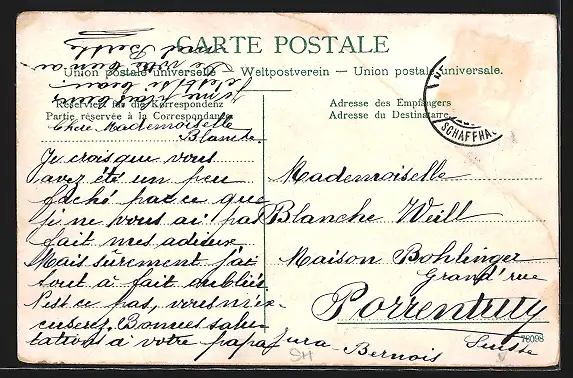 CARTE POSTALE
Union postale universelle — Weltpostverein — Union postale universale.
Reserviert für die Korrespondenz
Partie réservée à la Correspondance
Adresse des Empfängers
Adresse du Destinataire
SCHAFFHAU
Chère Mademoiselle
Blanche.
Je crois que vous
avez été un peu
fâché parce que
je ne vous ai pas
fait mes adieux.
Mais sûrement j'ai
tout à fait oubliés.
N'est ce pas, vous m'ex-
cuserez. Bonnes salu-
tations à votre papa
Mademoiselle
Blanche Weill
Maison Bohlinger
Grand' rue
Porrentruy
Jura Bernois Suisse
78098
votre
Berthe